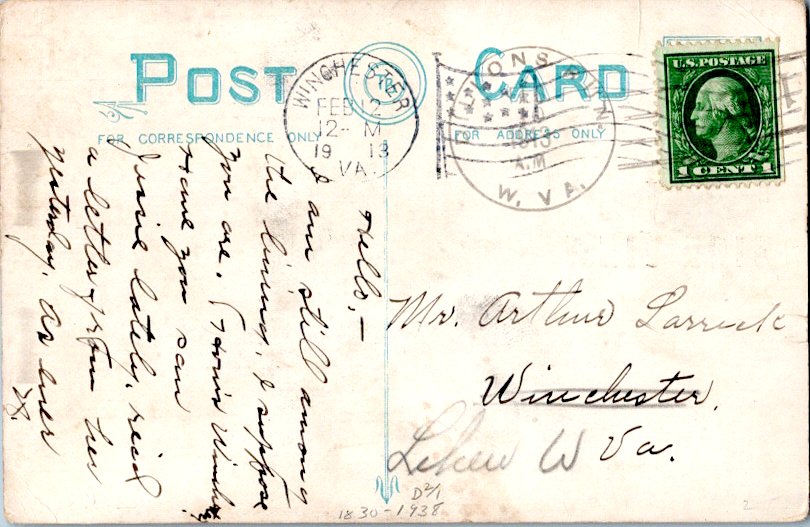 POST CARD
FOR CORRESPONDENCE ONLY
FOR ADDRESS ONLY
WINCHESTER
FEB 12
12-M
1913
VA.
1913
A.M
W. VA.
U.S. POSTAGE
1 CENT 1
Hello,—
I am still among
the living, I suppose
you are,
Have you seen
lately, rec'd
a letter from her
yesterday, as ever
Mr. Arthur Larrick
Winchester,
Va.
W
D2/1
1830-1938